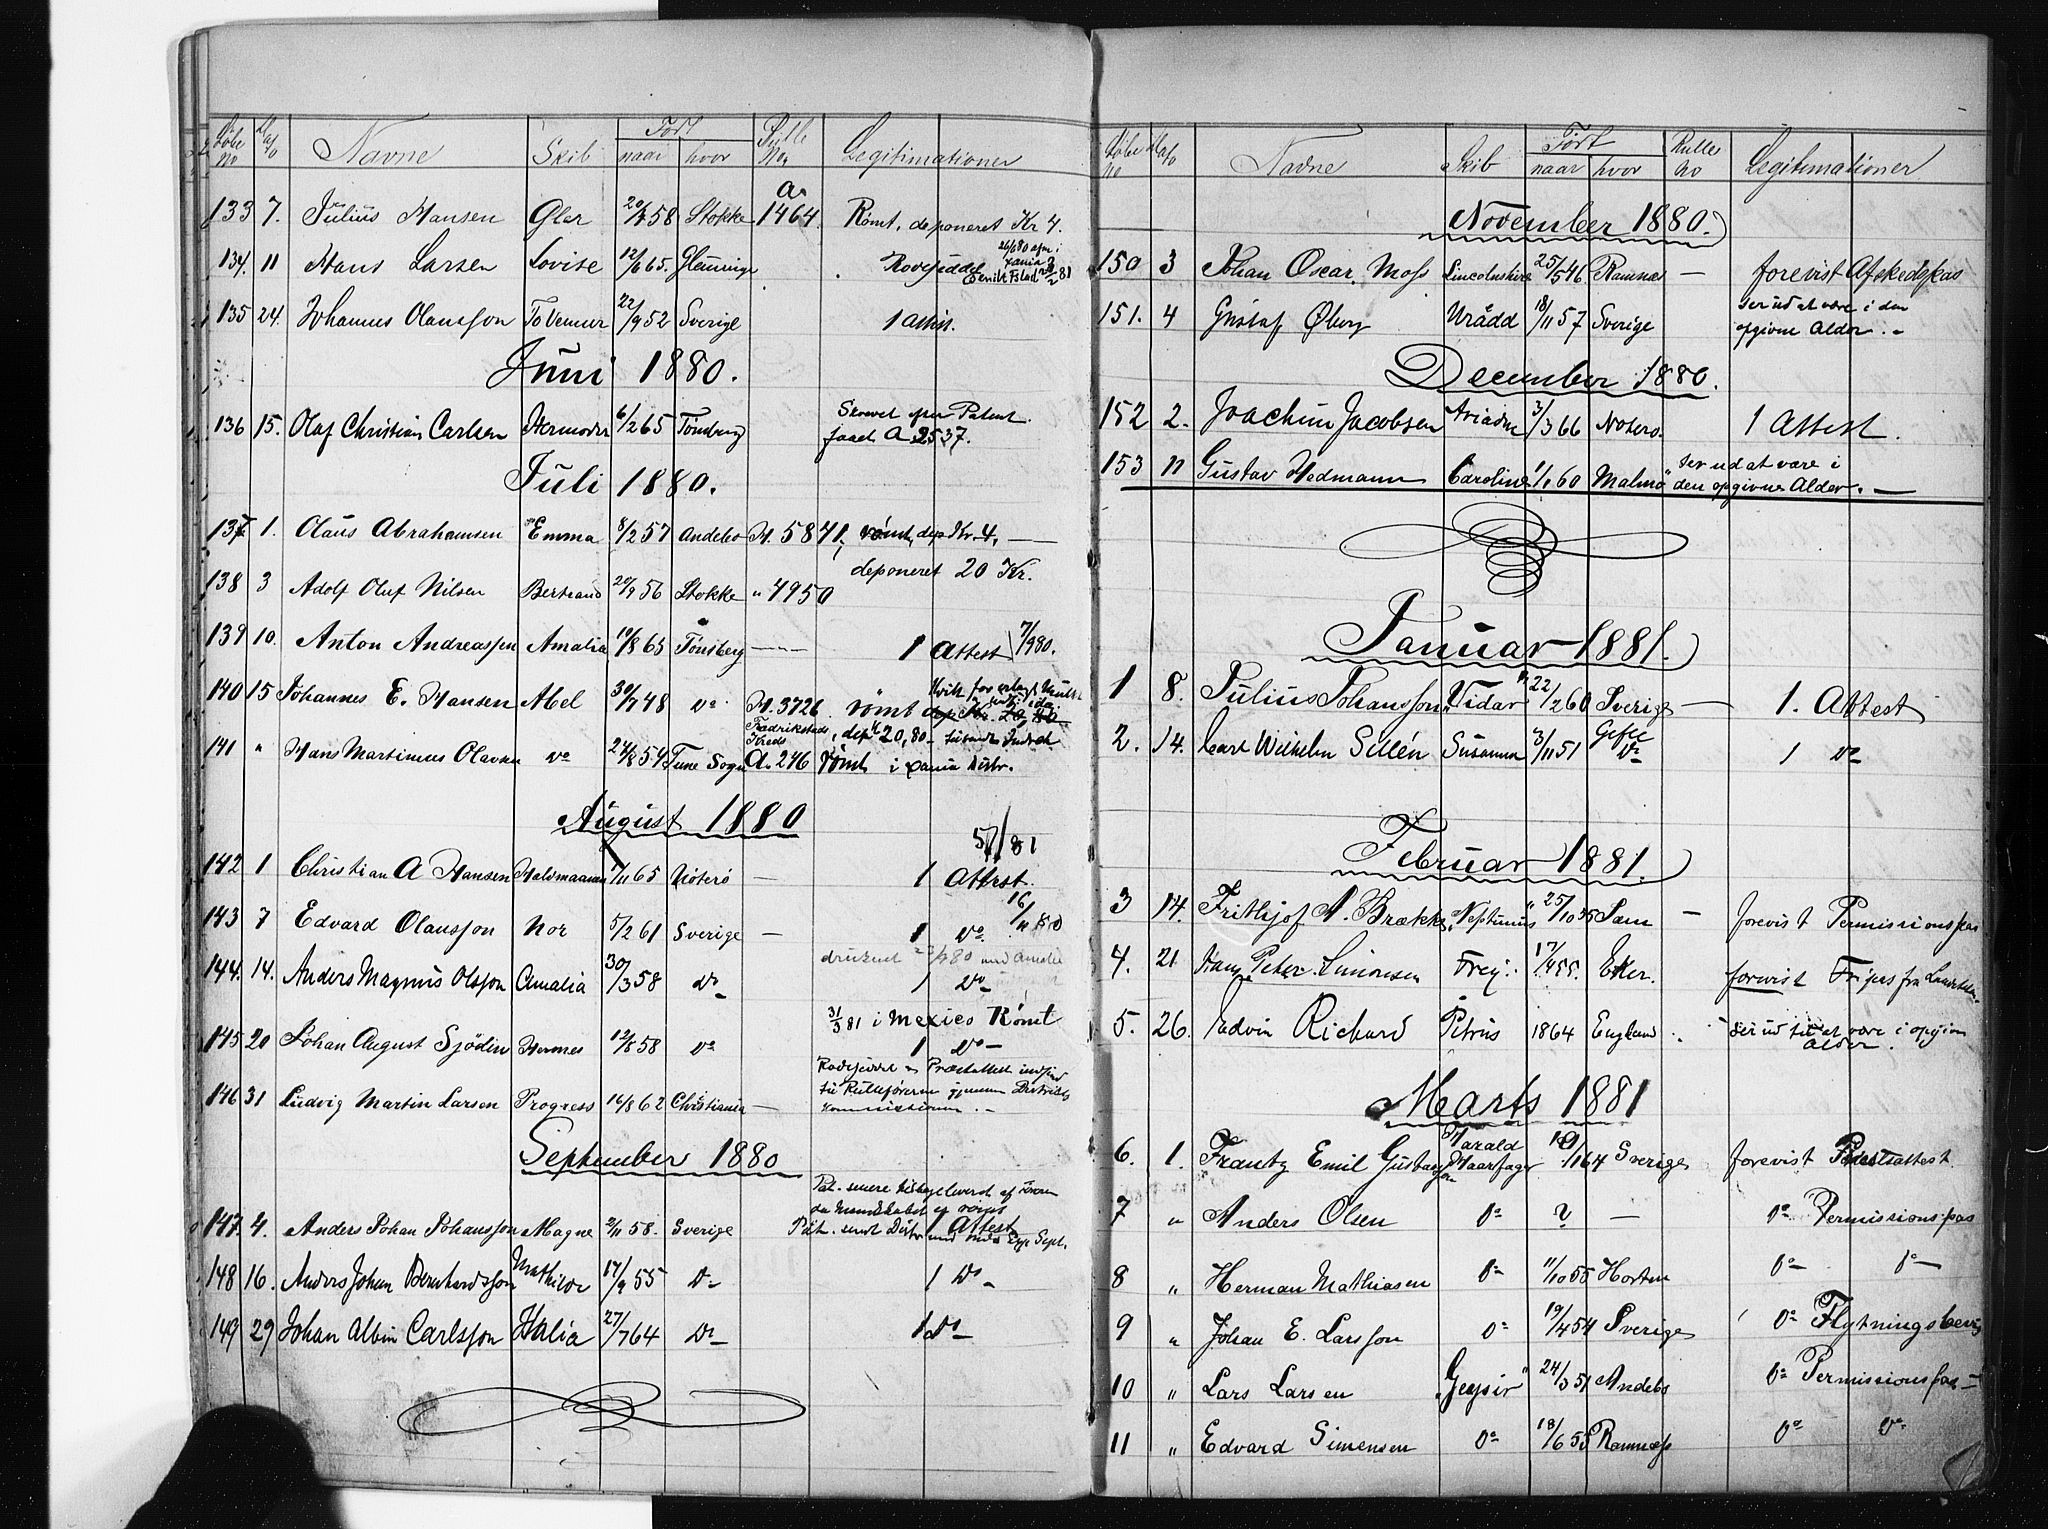 Løbe No Dato Navne Skib Født naar hvor Rulle No. Legitimationer
133 7. Julius Hansen Glar 20/4 58 Stokke A. 1464. Rømt, deponeret Kr 4.
134. 11 Hans Larsen Lovise 12/6 65. Rovseddel
135 24. Johannes Olausson To Venner 22/9 52 Sverige 1 Attest.
Juni 1880.
136 15. Olaf Christian Carlsen Hermoder 6/2 65 Tönsberg Skrevet efter Patent
faaet A 2537.
Juli 1880.
137 1. Olaus Abrahamsen Emma 8/2 57 Andebo H. 5841, rømt, dep Kr. 4, —
138 3 Adolf Oluf Nilsen Bertrand 20/9 56 Stokke " 4950 deponeret 20 Kr.
139 10. Anton Andreassen Amalia 10/8 65 Tönsberg — 1 Attest 7/9 80.
140 15 Johannes E. Hansen Abel 30/7 48 do H. 3726 rømt
141 " Hans Martinius Olavsen do 24/8 54 Tune Sogn Fredrikstads Kreds A. 246 rømt i Xania Distr.
August 1880
57/81
142 1 Christian A Hansen 1/11 65 Nøterø — 1 Attest.
143 7 Edvard Olausson Nor 5/2 61 Sverige — 1 Do. 16/11 80
144. 14. Anders Magnus Olsson Amalia 30/3 58 Do 1 Do
145 20 Johan August Sjödin Hermes 12/8 58 Do 31/3 81 i Mexico Römt
1 Do
146 31 Ludvig Martin Larsen Progress 16/8 62 Christiania —
September 1880
147. 4. Anders Johan Johansson Magne 2/11 58. Sverige 1 Attest
148 16. Anders Johan Bernhardsson Mathilde 17/9 55 Do 1 Do
149 29 Johan Albin Carlsson Italia 27/7 64 Do 1 Do
Løbe No Dato Navne Skib Født naar hvor Rulle No Legitimationer
November 1880.
150 3 Johan Oscar Moss Lincolnshire 25/5 46 Ramnæs — forevist Afskedspas
151. 4 Gustaf Öberg Urædd 18/11 57 Sverige Ser ud at være i den
opgivne Alder. -
December 1880.
152 2. Joachim Jacobsen Ariadne 3/3 66 Noterø. 1 Attest.
153 11 Gustav Hedmann Caroline 1/1 60 Malmø Ser ud at være i
den opgivne Alder. —
Januar 1881.
1 8. Julius Johansson "Vidar" 22/2 60 Sverige — 1. Attest
2. 14. Carl Wilhelm Sillén Susanna 3/11 51 Gefle Do 1 Do
Februar 1881.
3 14. Frithjof A. Brække "Neptunus" 25/10 35 Sem — forevist Permissionspas
4. 21 Hans Peter Simonsen Frey. 17/4 55. Eker. forevist Fripas fra
5. 26. Edvin Richard Petrus 1864 England ser ud til at være i opgiven
Alder.
Marts 1881
6. 1. Frantz Emil Gustafsson Harald Haarfager 1/1 64 Sverige forevist Præsteattest.
7 " Anders Olsen Do — Do Permissionspas
8 " Herman Mathiasen Do 11/10 55 Horten Do Do
9 " Johan E. Larsson Do 19/4 54 Sverige Do Flytningsbevis
10 " Lars Larsen "Geysir" 24/3 51 Andebo Do Permissionspas
11 " Edvard Simensen Do 18/6 55 Ramnæs Do Do